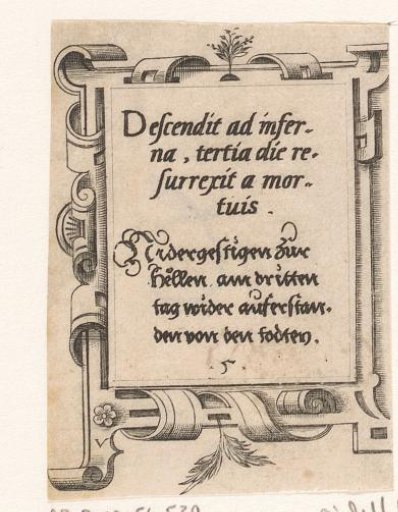 Descendit ad infer-
na, tertia die re-
surrexit a mor-
tuis.
Nidergestigen zur
hellen am dritten
tag wider auferstan-
den von den todten.
.5.
V